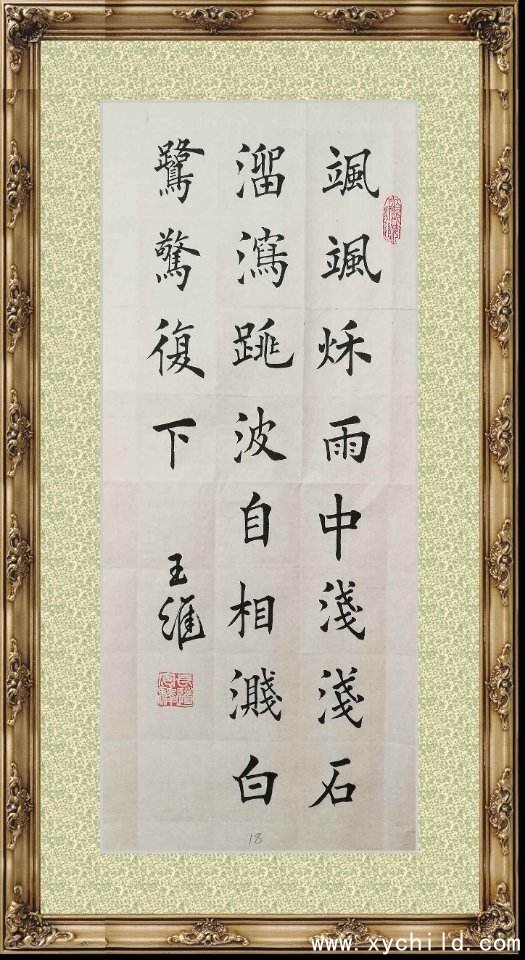 颯颯秌雨中淺淺石
溜瀉跳波自相濺白
鷺驚復下
王維
18
www.xychild.com